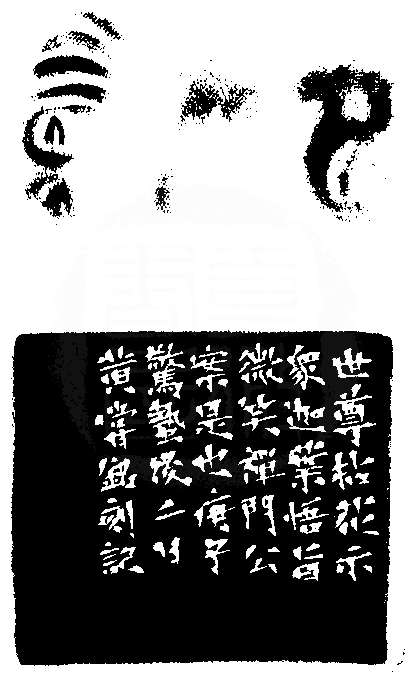 世尊拈花示
眾迦葉悟旨
微笑禪門公
案是也庚子
驚蟄後二日
黃嘗銘刻記